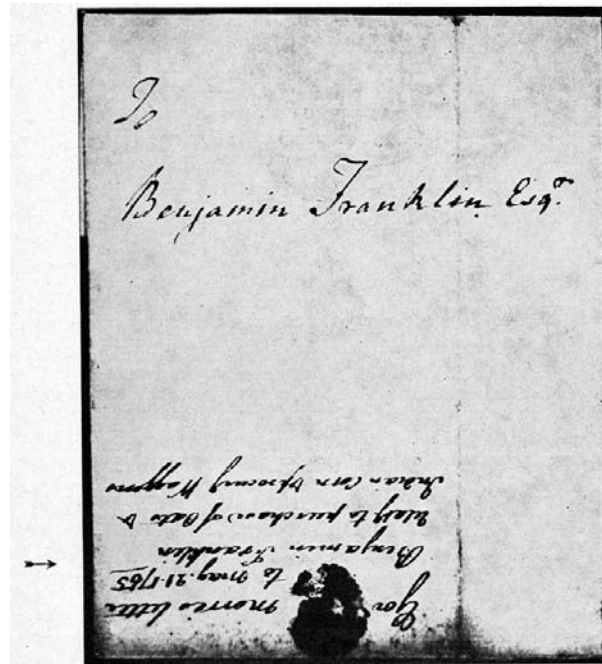 To
Benjamin Franklin Esqr.
Gov Morris letter
to May 21-1755
Benjamin Franklin
to purchase of Oats &
Indian Corn Waggons